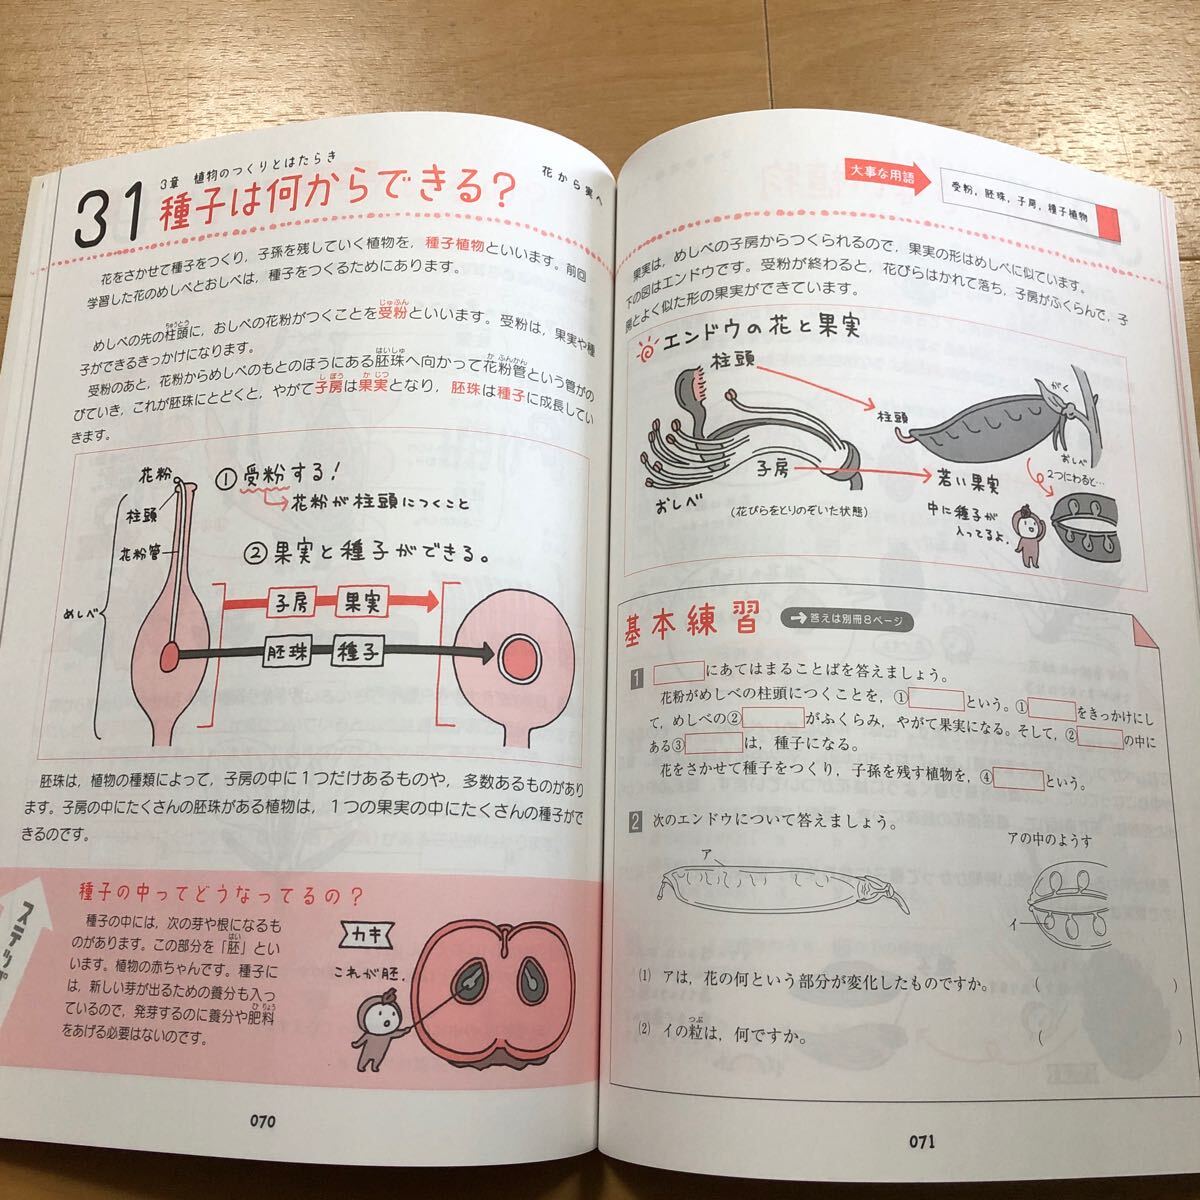 31
3章 植物のつくりとはたらき
種子は何からできる?
花から実へ
花をさかせて種子をつくり,子孫を残していく植物を,種子植物といいます。前回
学習した花のめしべとおしべは,種子をつくるためにあります。
めしべの先の柱頭に,おしべの花粉がつくことを受粉といいます。受粉は,果実や種
ちゅうとう
じゅふん
子ができるきっかけになります。
受粉のあと,花粉からめしべのもとのほうにある胚珠へ向かって花粉管という管がの
はいしゅ
か ふんかん
びていき,これが胚珠にとどくと,やがて子房は果実となり,胚珠は種子に成長してい
しぼう
か じつ
きます。
花粉
柱頭
花粉管
めしべ
①受粉する!
花粉が柱頭につくこと
②果実と種子ができる。
子房
果実
胚珠
種子
胚珠は,植物の種類によって,子房の中に1つだけあるものや,多数あるものがあり
ます。子房の中にたくさんの胚珠がある植物は,1つの果実の中にたくさんの種子がで
きるのです。
種子の中ってどうなってるの?
種子の中には,次の芽や根になるも
のがあります。この部分を「胚」とい
はい
います。植物の赤ちゃんです。種子に
は,新しい芽が出るための養分も入っ
ているので,発芽するのに養分や肥料
ひ りょう
をあげる必要はないのです。
カキ
これが胚.
070
大事な用語
受粉,胚珠,子房,種子植物
果実は,めしべの子房からつくられるので,果実の形はめしべに似ています。
下の図はエンドウです。受粉が終わると,花びらはかれて落ち,子房がふくらんで,子
房とよく似た形の果実ができています。
エンドウの花と果実
柱頭
柱頭
がく
おしべ
子房
若い果実
おしべ
2つにわると…
(花びらをとりのぞいた状態)
中に種子が
入ってるよ.
基本練習
答えは別冊8ページ
1
にあてはまることばを答えましょう。
花粉がめしべの柱頭につくことを,① という。① をきっかけにし
て,めしべの② がふくらみ,やがて果実になる。そして,② の中に
ある③ は,種子になる。
花をさかせて種子をつくり,子孫を残す植物を,④ という。
2 次のエンドウについて答えましょう。
アの中のようす
ア
イ
(1) アは,花の何という部分が変化したものですか。 ( )
(2) イの粒は,何ですか。 ( )
つぶ
071